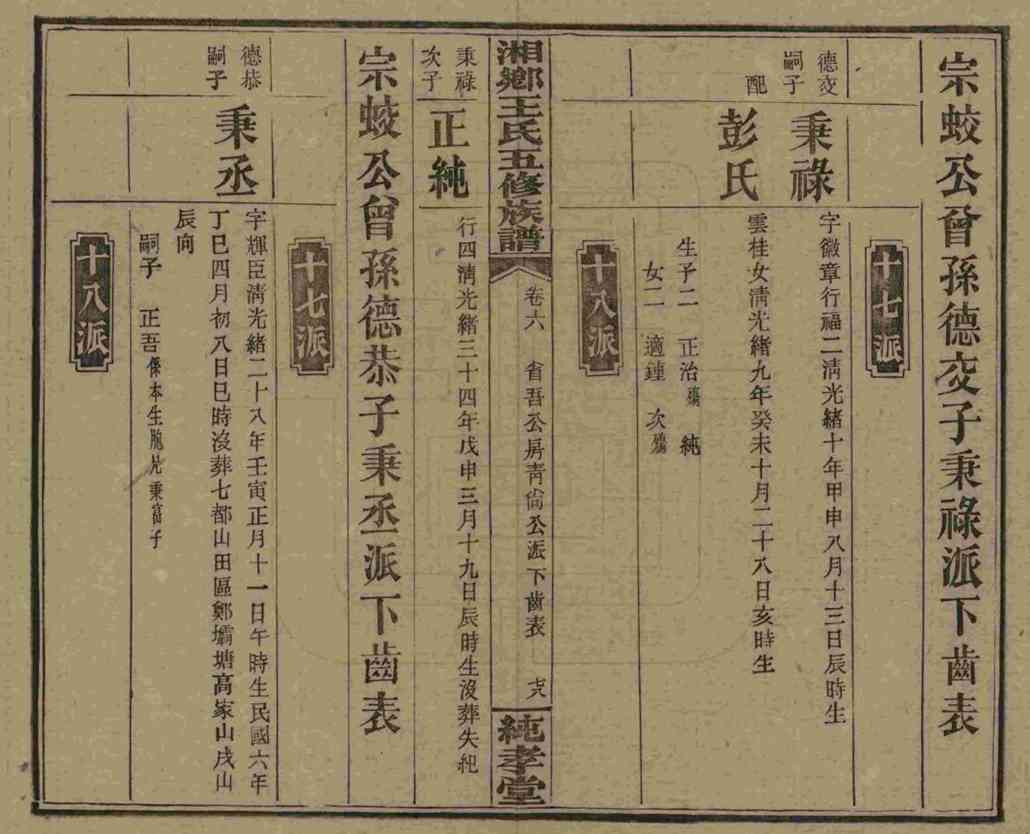 宗蛟公曾孫德交子秉祿派下齒表
十七派
德交
嗣子
秉祿
字徽章行福二淸光緒十年甲申八月十三日辰時生
配
彭氏
雲桂女淸光緒九年癸未十月二十八日亥時生
生子二 正治殤 純
女二 適鍾 次殤
十八派
湘鄉王氏五修族譜
卷六 省吾公房靑尙公派下齒表
純孝堂
秉祿
次子
正純
行四淸光緒三十四年戊申三月十九日辰時生沒葬失紀
宗蛟公曾孫德恭子秉丞派下齒表
十七派
德恭
嗣子
秉丞
字輝臣淸光緒二十八年壬寅正月十一日午時生民國六年
丁巳四月初八日巳時沒葬七都山田區鄭壩塘高家山戌山
辰向
嗣子 正吾係本生胞兄秉富子
十八派